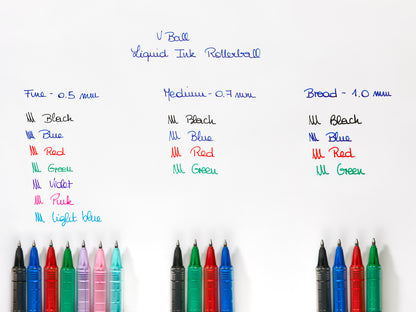 V Ball
Liquid Ink Rollerball
Fine - 0.5 mm
Black
Blue
Red
Green
Violet
Pink
Light blue
Medium - 0.7 mm
Black
Blue
Red
Green
Broad - 1.0 mm
Black
Blue
Red
Green